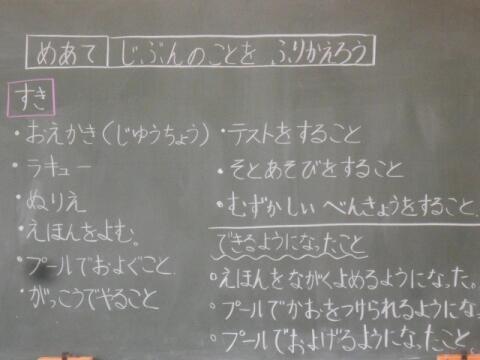 めあて じぶんのことを ふりかえろう
すき
・おえかき(じゆうちょう)
・ラキュー
・ぬりえ
・えほんをよむ。
・プールでおよぐこと.
・がっこうでやること
・テストをすること
・そとあそびをすること
・むずかしい べんきょうをすること.
できるようになったこと
○えほんをながくよめるようになった。
○プールでかおをつけられるようにな
○プールでおよげるようになったこと。